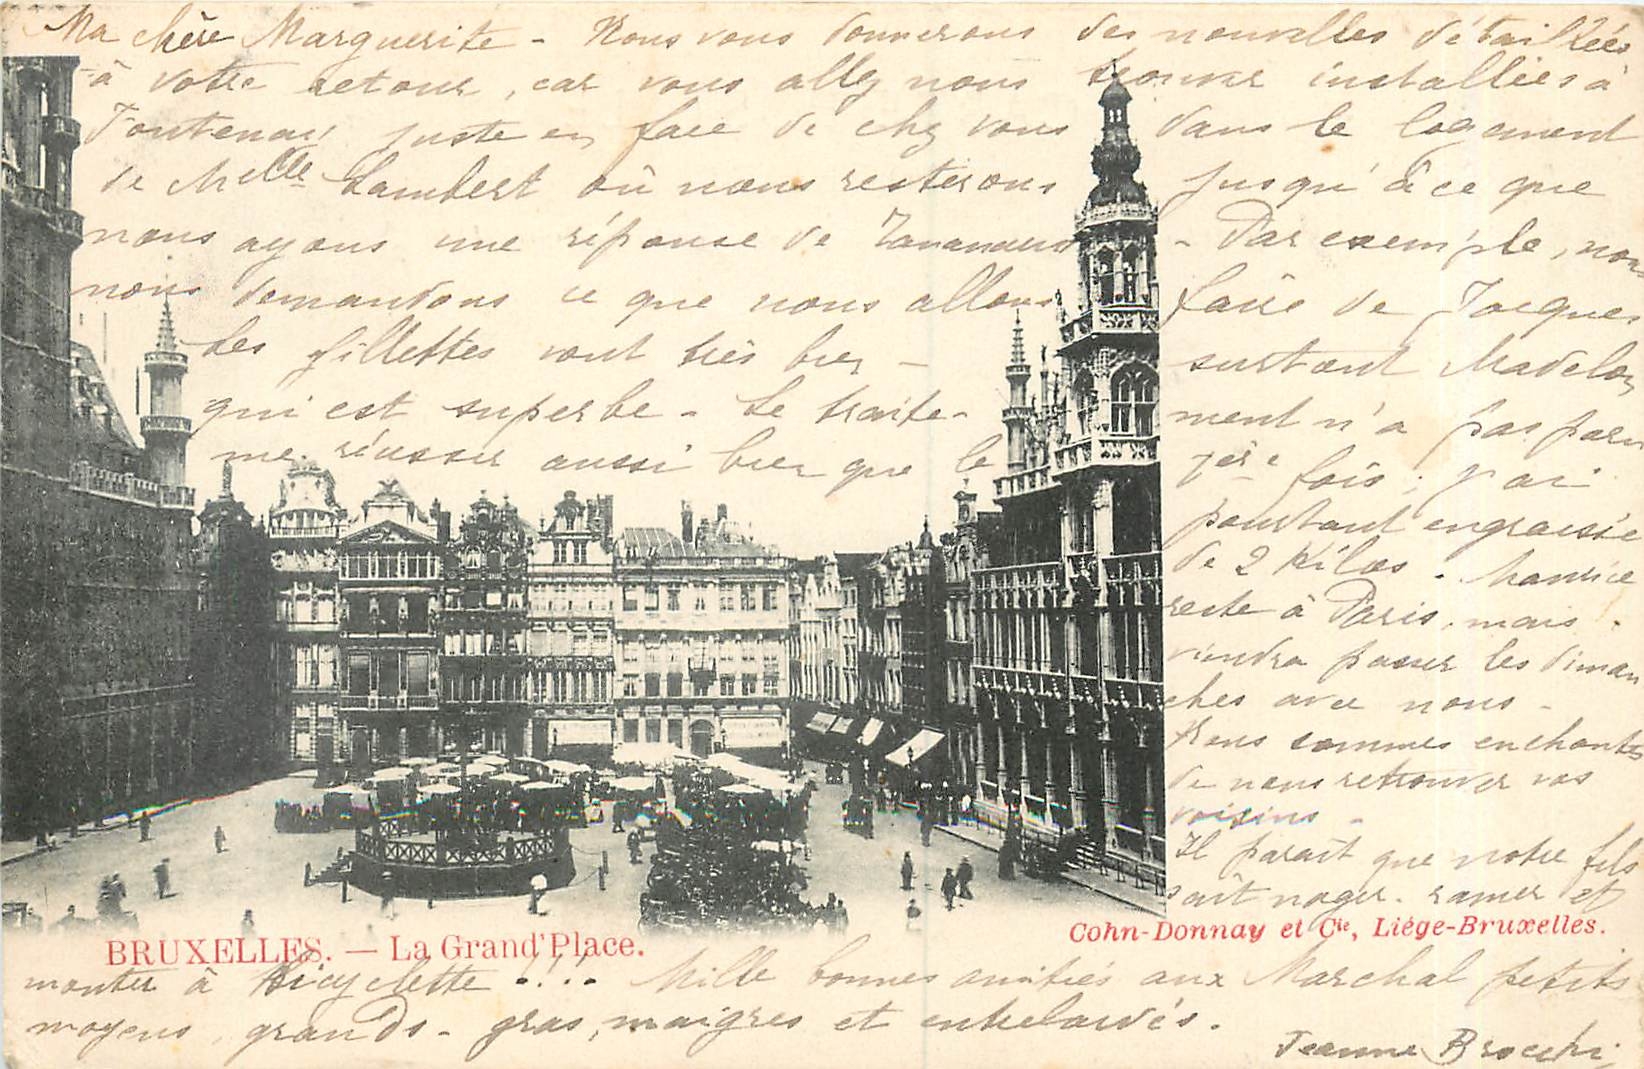 Ma chère Marguerite - Nous vous donnerons des nouvelles détaillées
à votre retour, car vous allez nous trouver installées à
Fontenay juste en face de chez vous dans le logement
de Melle Lambert où nous resterons jusqu'à ce que
nous ayons une réponse de - Par exemple, nous
nous demandons ce que nous allons faire de Jacques
Les fillettes vont très bien - surtout Madelon
qui est superbe - Le traite-
ment n'a pas paru
me réussir aussi bien que le
1ère fois, j'ai
pourtant engraissé
de 2 kilos. Maurice
reste à Paris, mais
viendra passer les diman
ches avec nous -
Nous sommes enchantés
de nous retrouver vos
voisins -
Il parait que notre fils
sait nager. ramer et
BRUXELLES. — La Grand'Place.
Cohn-Donnay et Cie, Liége-Bruxelles.
monter à bicyclette !!! Mille bonnes amitiés aux Marchal petits
moyens, grands - gras, maigres et entrelardés.
Jeanne Brocchi